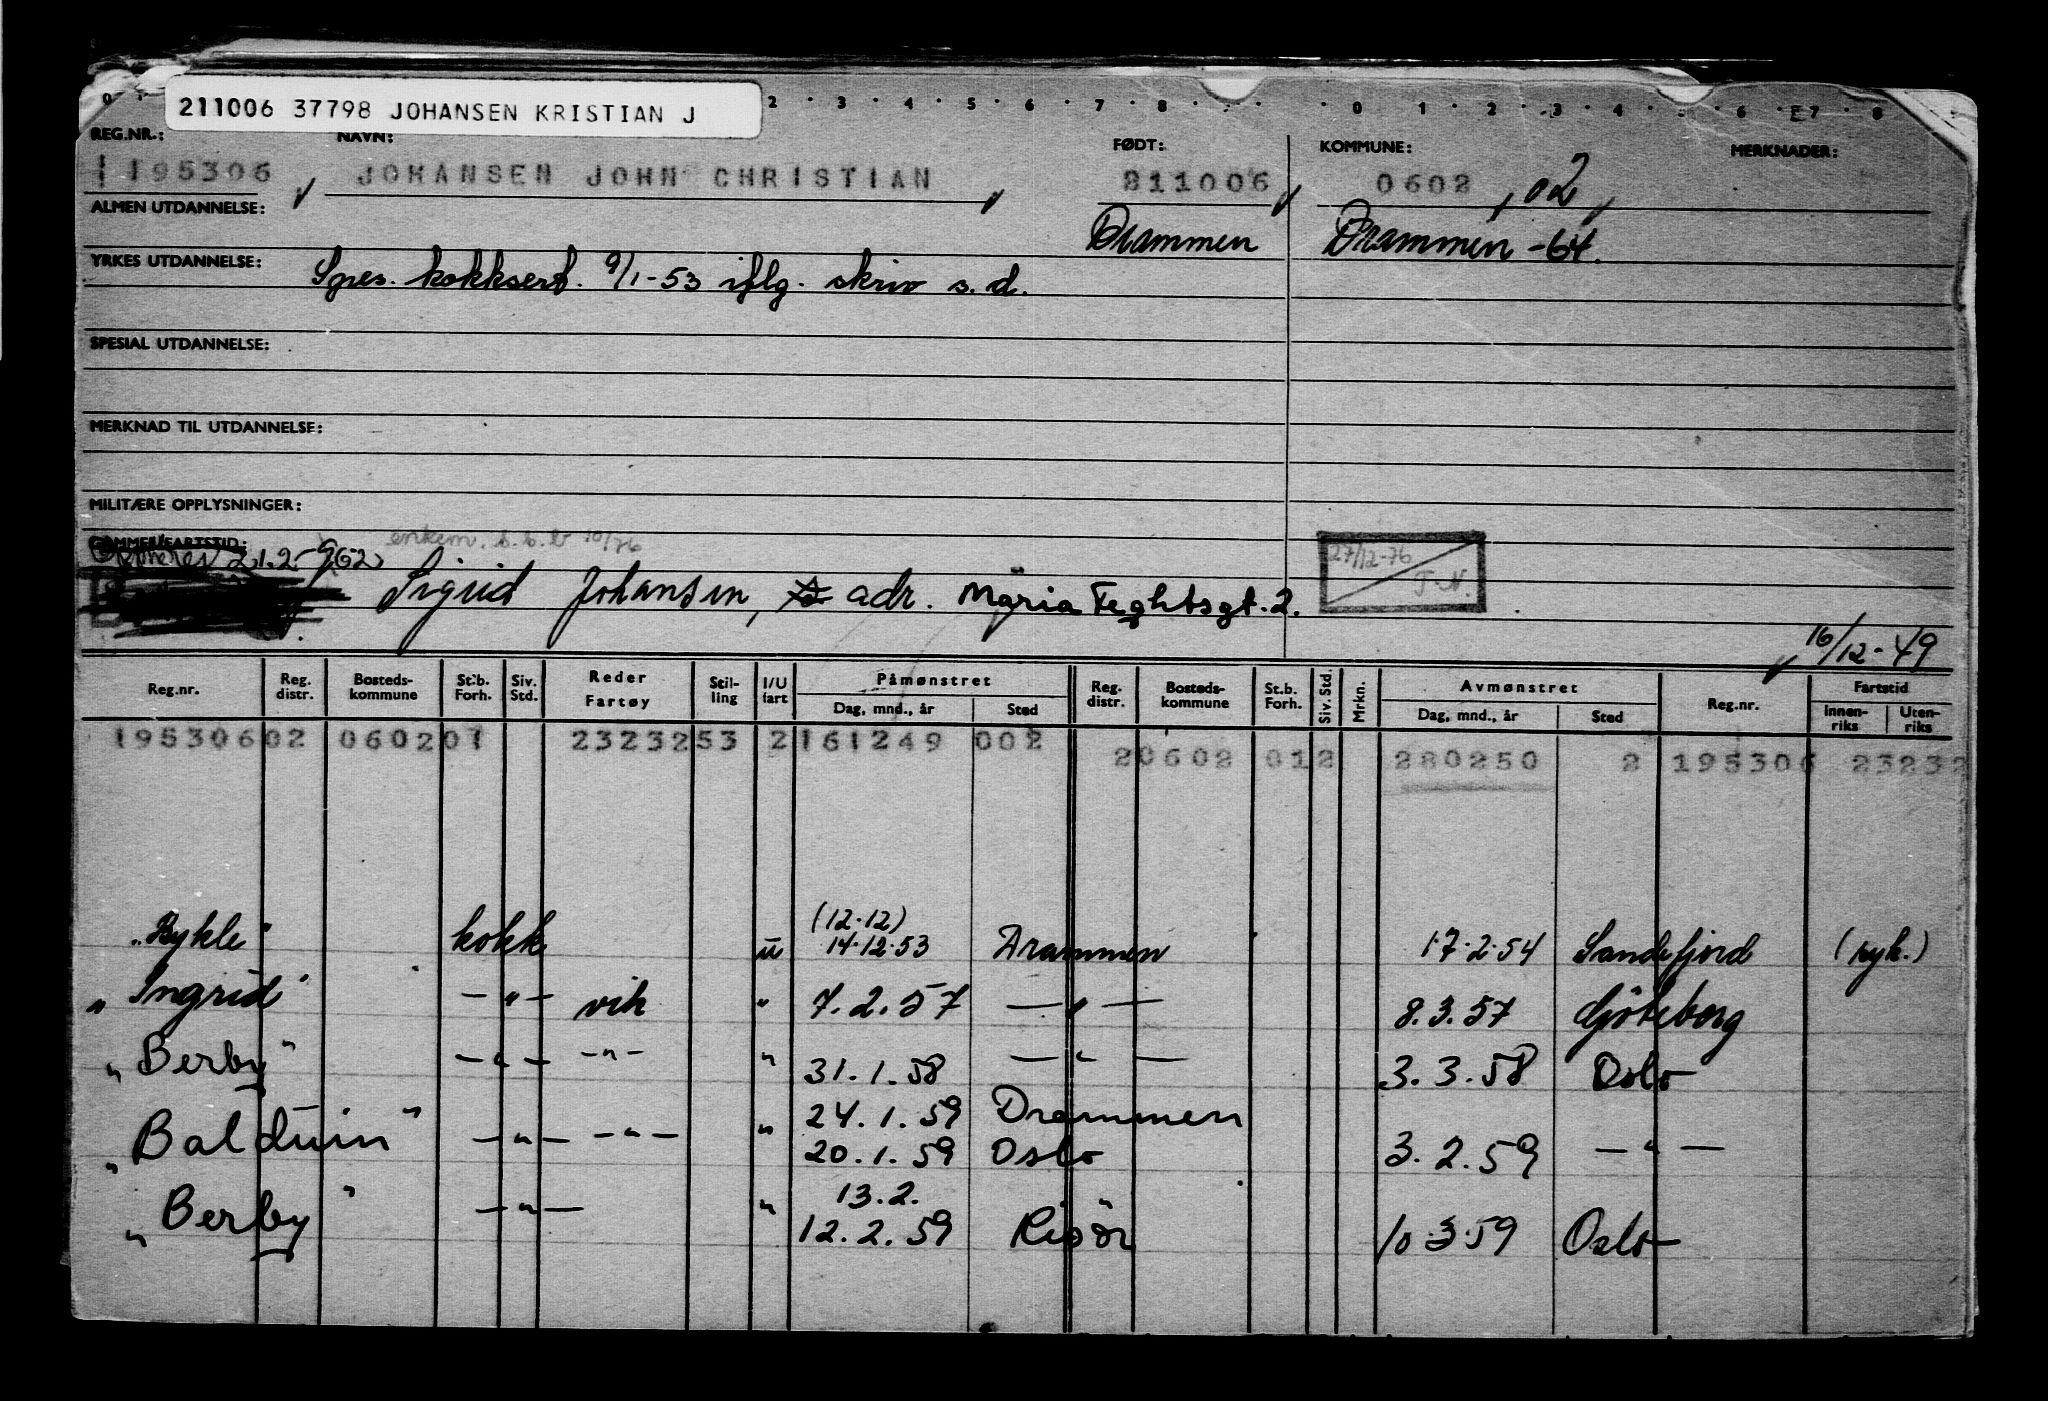 0 2 3 4 5 6 7 8 0 1 2 3 4 6 E7 8
211006 37798 JOHANSEN KRISTIAN J
REG.NR.: NAVN: FØDT: KOMMUNE: MERKNADER:
195306 JOHANSEN JOHN CHRISTIAN 211006 0602 , 02
ALMEN UTDANNELSE: Drammen Drammen -64.
YRKES UTDANNELSE: Spes. kokksert. 9/1-53 iflg. skriv s.d.
SPESIAL UTDANNELSE:
MERKNAD TIL UTDANNELSE:
MILITÆRE OPPLYSNINGER:
21.2.-962 enkem. s.b.b 10/76 27/12-76 T.N.
Sigrid Johansen, adr. Maria Feghtsgt. 2.
16/12-49
Reg.nr. Reg. distr. Bosteds-kommune St.b. Forh. Siv. Std. Reder Fartøy Stil-ling I/U fart Påmønstret Reg. distr. Bosteds-kommune St.b. Forh. Siv. Std. Mrkn. Avmønstret Reg.nr. Fartstid
Dag, mnd., år Sted Dag, mnd., år Sted Innen-riks Uten-riks
195306 02 0602 01 23232 53 2 161249 002 2 0602 01 2 280250 2 195306 23232
(12.12)
"Bykle" kokk u 14.12.53 Drammen 17.2.54 Sandefjord (syk.)
"Ingrid" — " — vik " 7.2.57 — " — 8.3.57 Göteborg
"Berby" — " — — " — " 31.1.58 — " — 3.3.58 Oslo
24.1.59 Drammen
"Balduin" — " — — " — " 20.1.59 Oslo 3.2.59 — " —
13.2.
"Berby" — " — " 12.2.59 Risör 10.3.59 Oslo